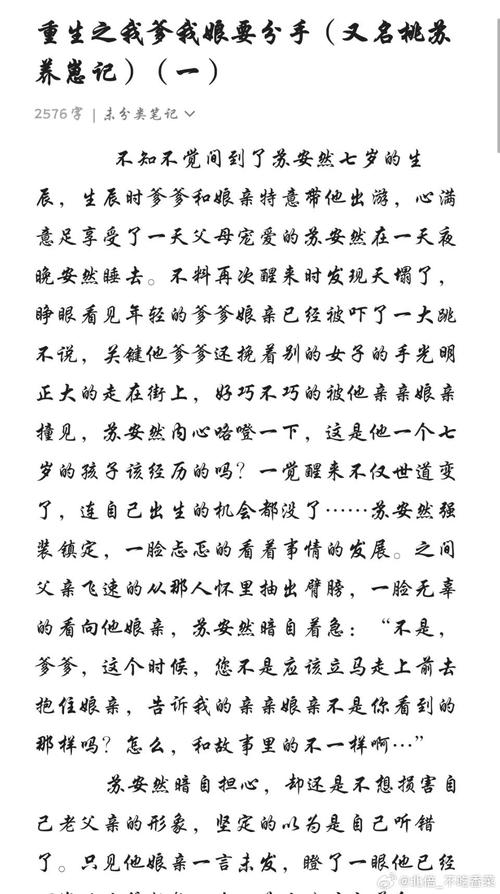 重生之我爹我娘要分手（又名桃苏
养崽记）（一）
2576字 | 未分类笔记
不知不觉间到了苏安然七岁的生
辰，生辰时爹爹和娘亲特意带他出游，心满
意足享受了一天父母宠爱的苏安然在一天夜
晚安然睡去。不料再次醒来时发现天塌了，
睁眼看见年轻的爹爹娘亲已经被吓了一大跳
不说，关键他爹爹还挽着别的女子的手光明
正大的走在街上，好巧不巧的被他亲亲娘亲
撞见，苏安然内心咯噔一下，这是他一个七
岁的孩子该经历的吗？一觉醒来不仅世道变
了，连自己出生的机会都没了……苏安然强
装镇定，一脸忐忑的看着事情的发展。之间
父亲飞速的从那人怀里抽出臂膀，一脸无辜
的看向他娘亲，苏安然暗自着急：“不是，
爹爹，这个时候，您不是应该立马走上前去
抱住娘亲，告诉我的亲亲娘亲不是你看到的
那样吗？怎么，和故事里的不一样啊…”
苏安然暗自担心，却还是不想损害自
己老父亲的形象，坚定的以为是自己听错
了。只见他娘亲一言未发，瞪了一眼他已经
@北倍_不吃香菜